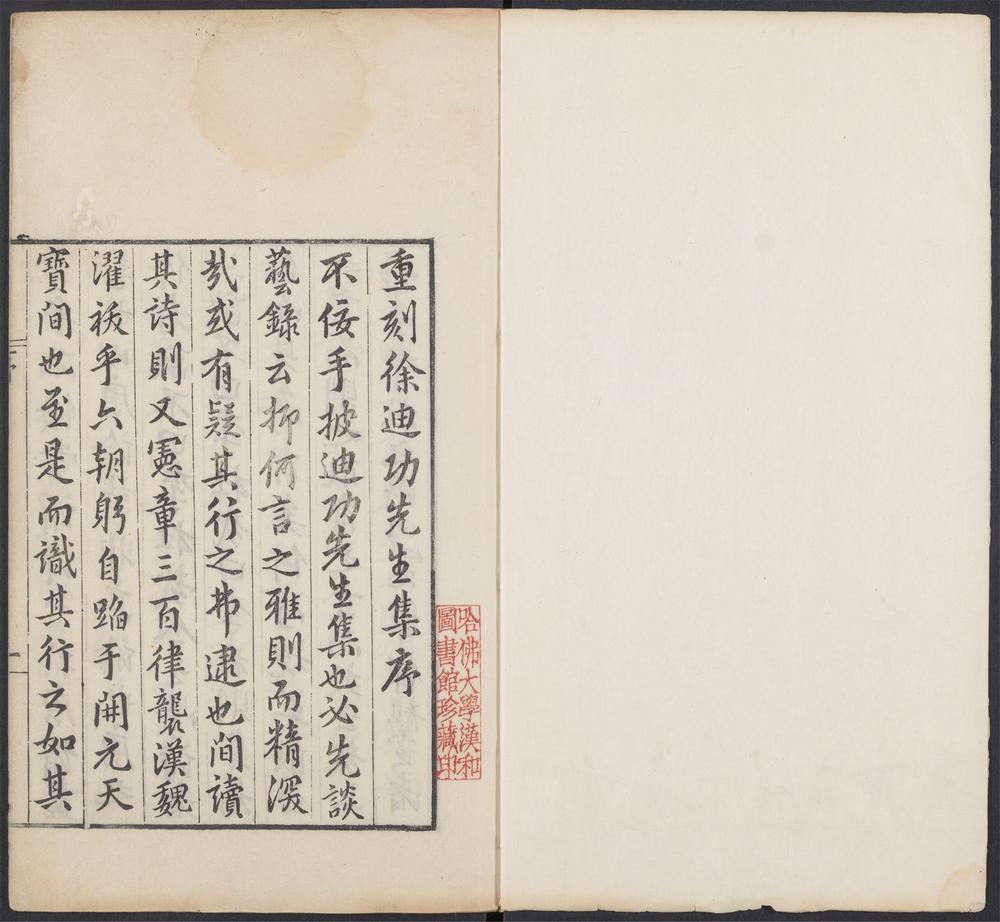 重刻徐迪功先生集序
不佞手披迪功先生集也必先談
藝錄云抑何言之雅則而精深
哉或有疑其行之弗逮也間讀
其詩則又憲章三百律襲漢魏
濯祓乎六朝躬自蹈于開元天
寶間也至是而識其行之如其
序
一
哈佛大學漢和
圖書館珍藏印